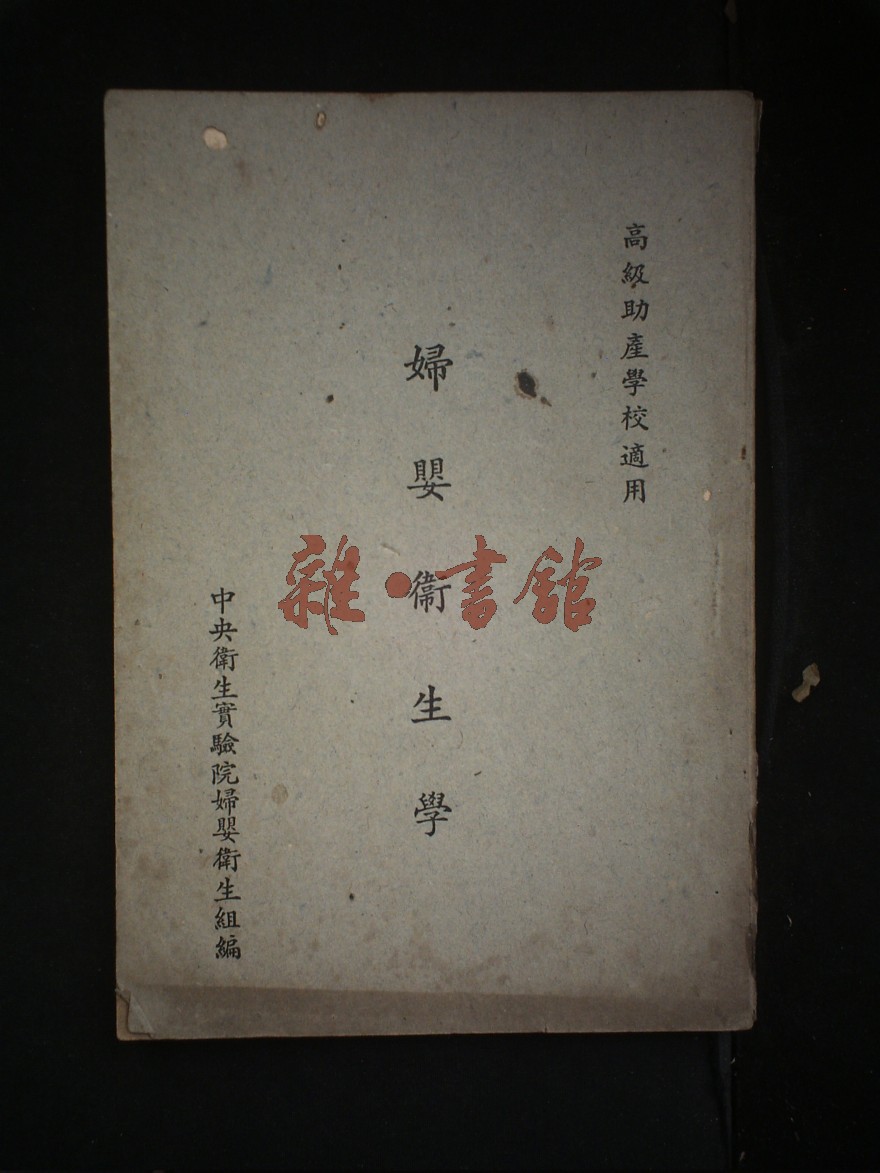 高級助產學校適用
婦嬰衞生學
中央衛生實驗院婦嬰衛生組編
雜·書館